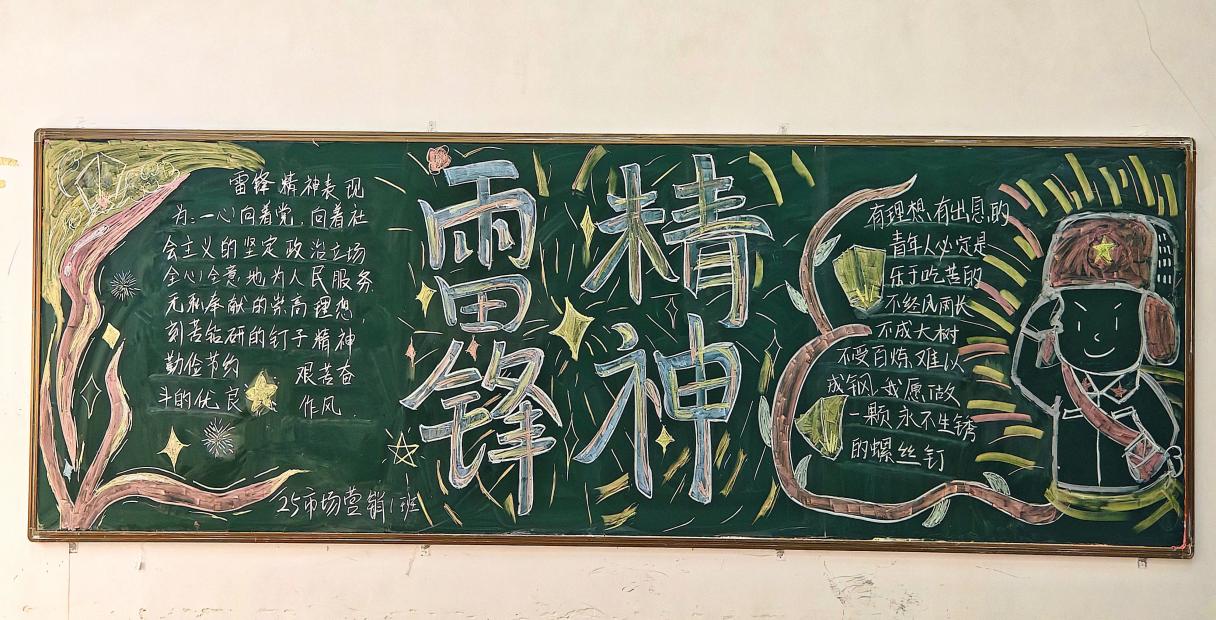 雷锋精神表现
为:一心向着党,向着社
会主义的坚定政治立场
全心全意地为人民服务
无私奉献的崇高理想
刻苦钻研的钉子精神
勤俭节约 艰苦奋
斗的优良 作风.
25市场营销1班
雷锋
精神
有理想,有出息的
青年人必定是
乐于吃苦的
不经风雨长
不成大树
不受百炼,难以
成钢,我愿做
一颗永不生锈
的螺丝钉